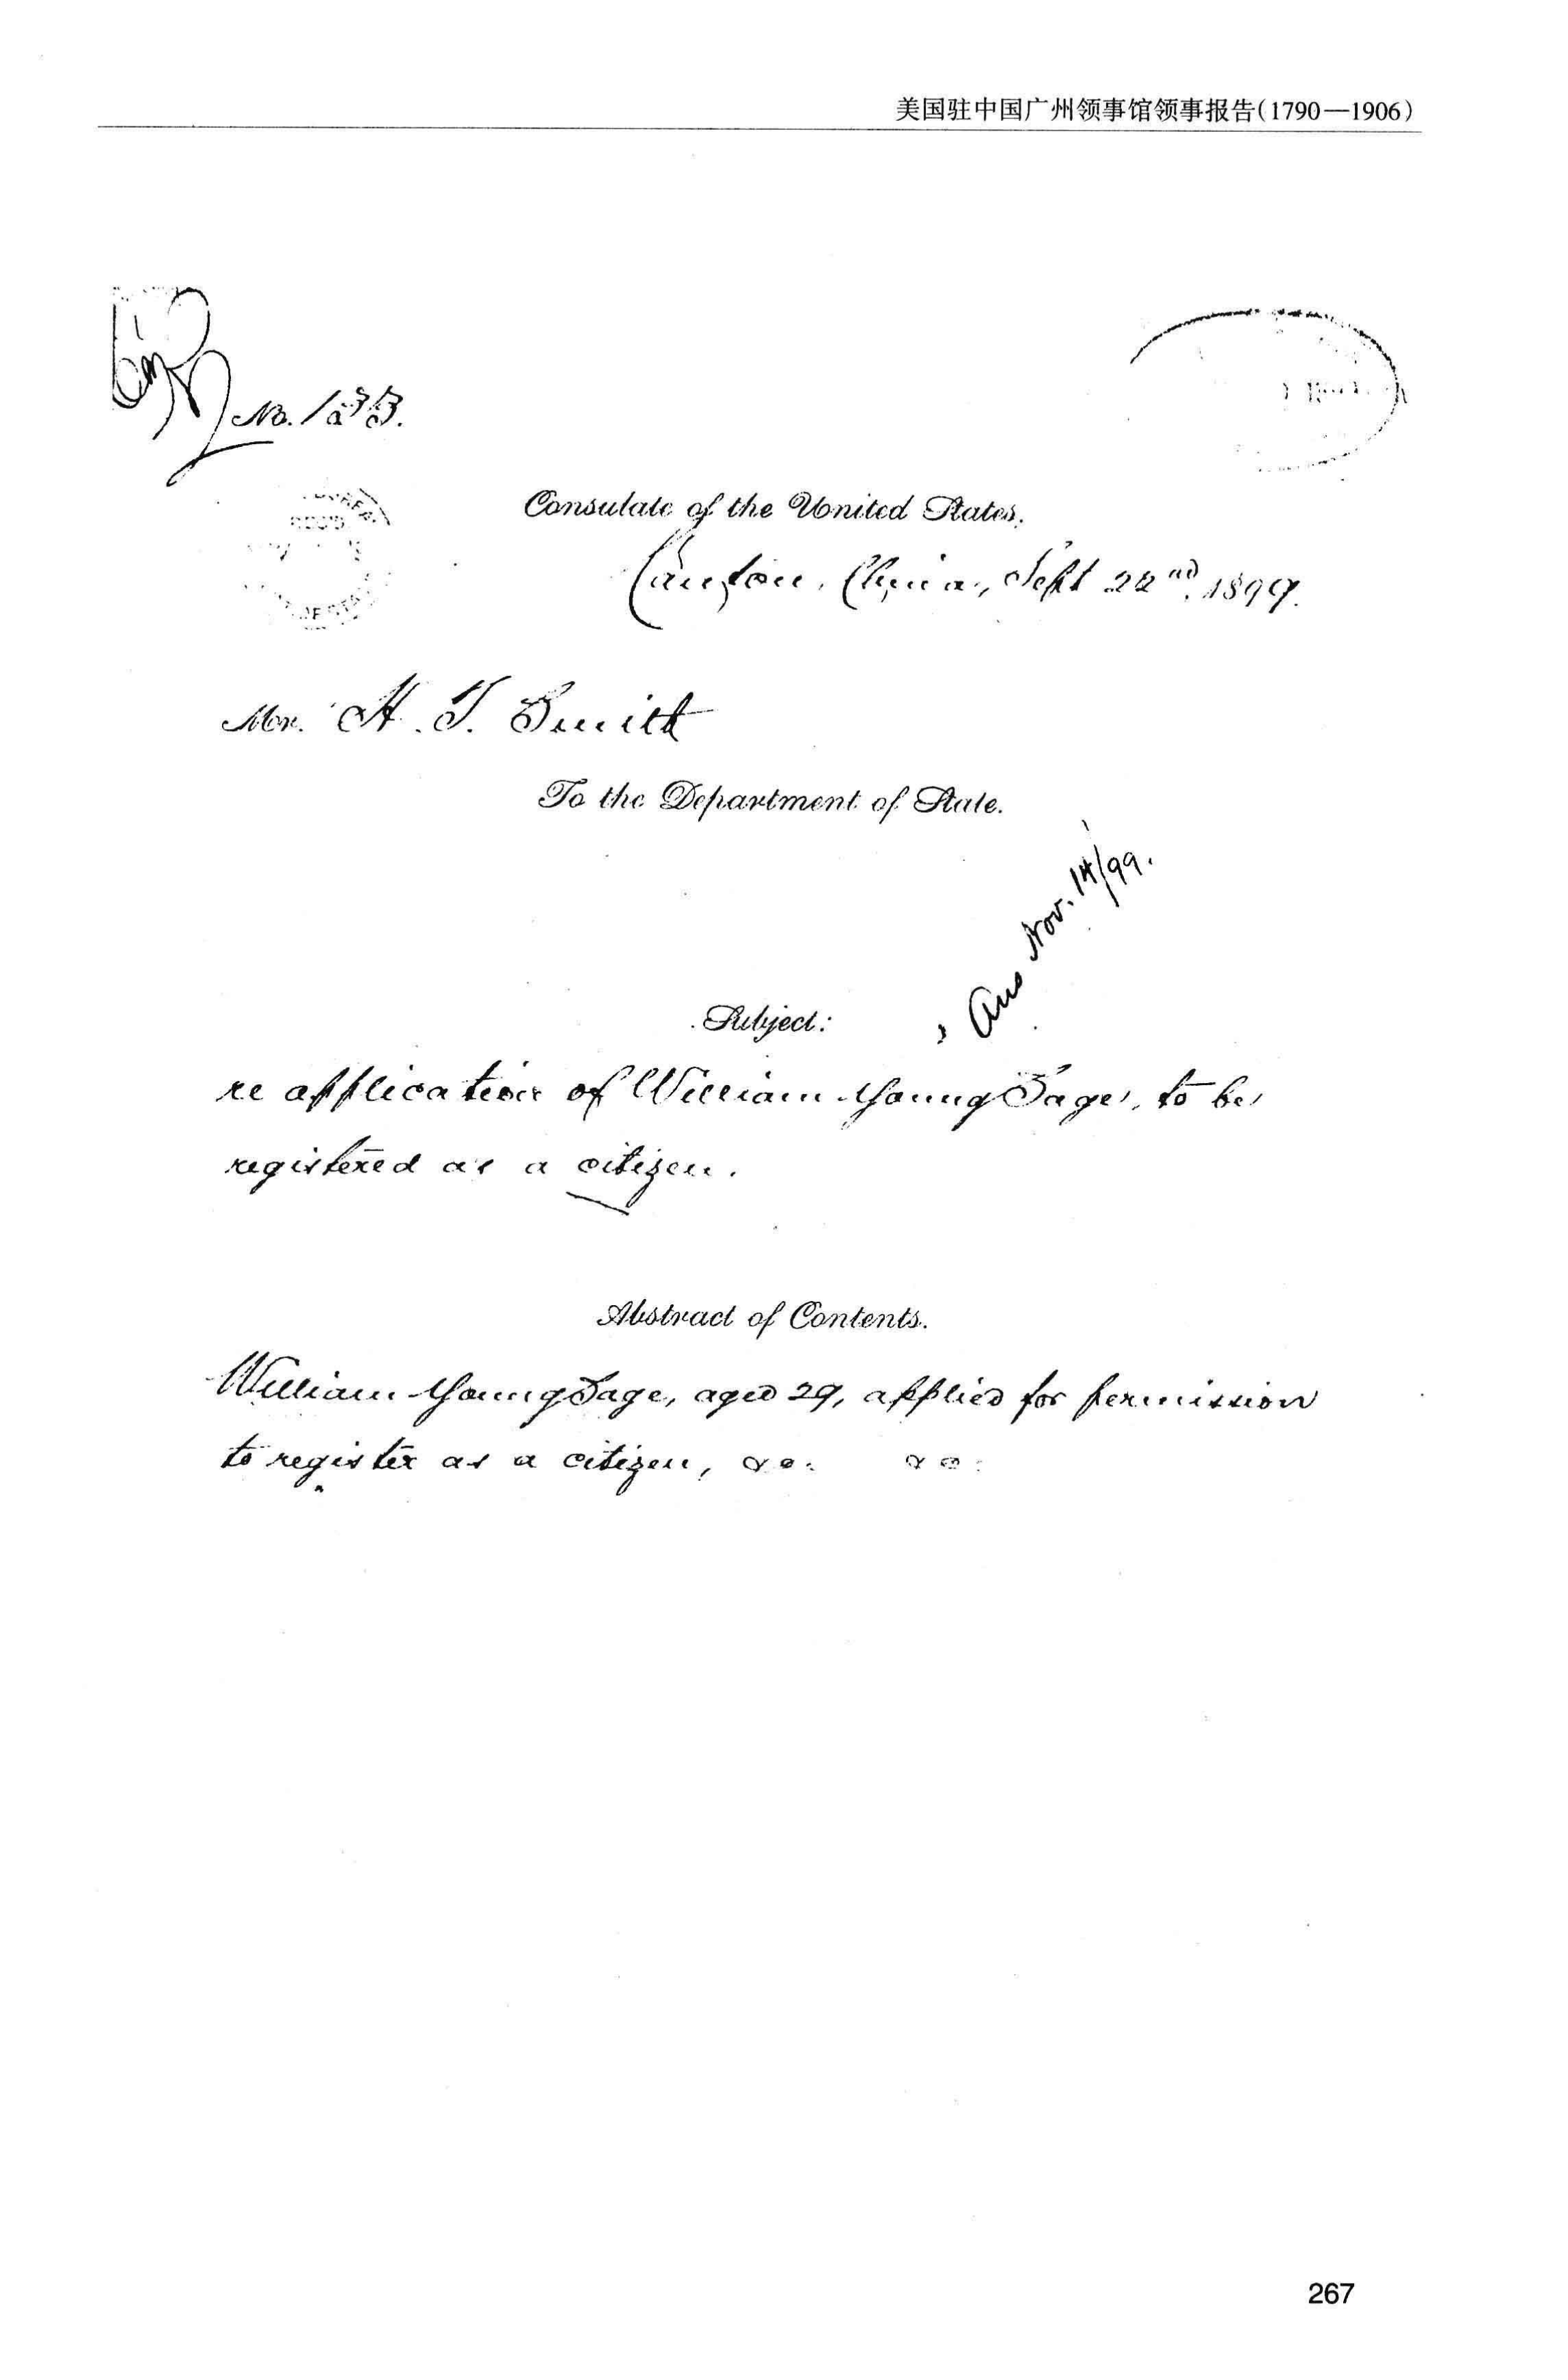 美国驻中国广州领事馆领事报告(1790—1906)
No. 133.
Consulate of the United States,
Canton, China, Sept 22nd, 1899.
Mr. H. T. Smith
To the Department of State.
Ans Nov. 14/99.
Subject:
re application of William Young Sage, to be
registered as a citizen.
Abstract of Contents.
William Young Sage, aged 29, applied for permission
to register as a citizen, &c. &c.
267